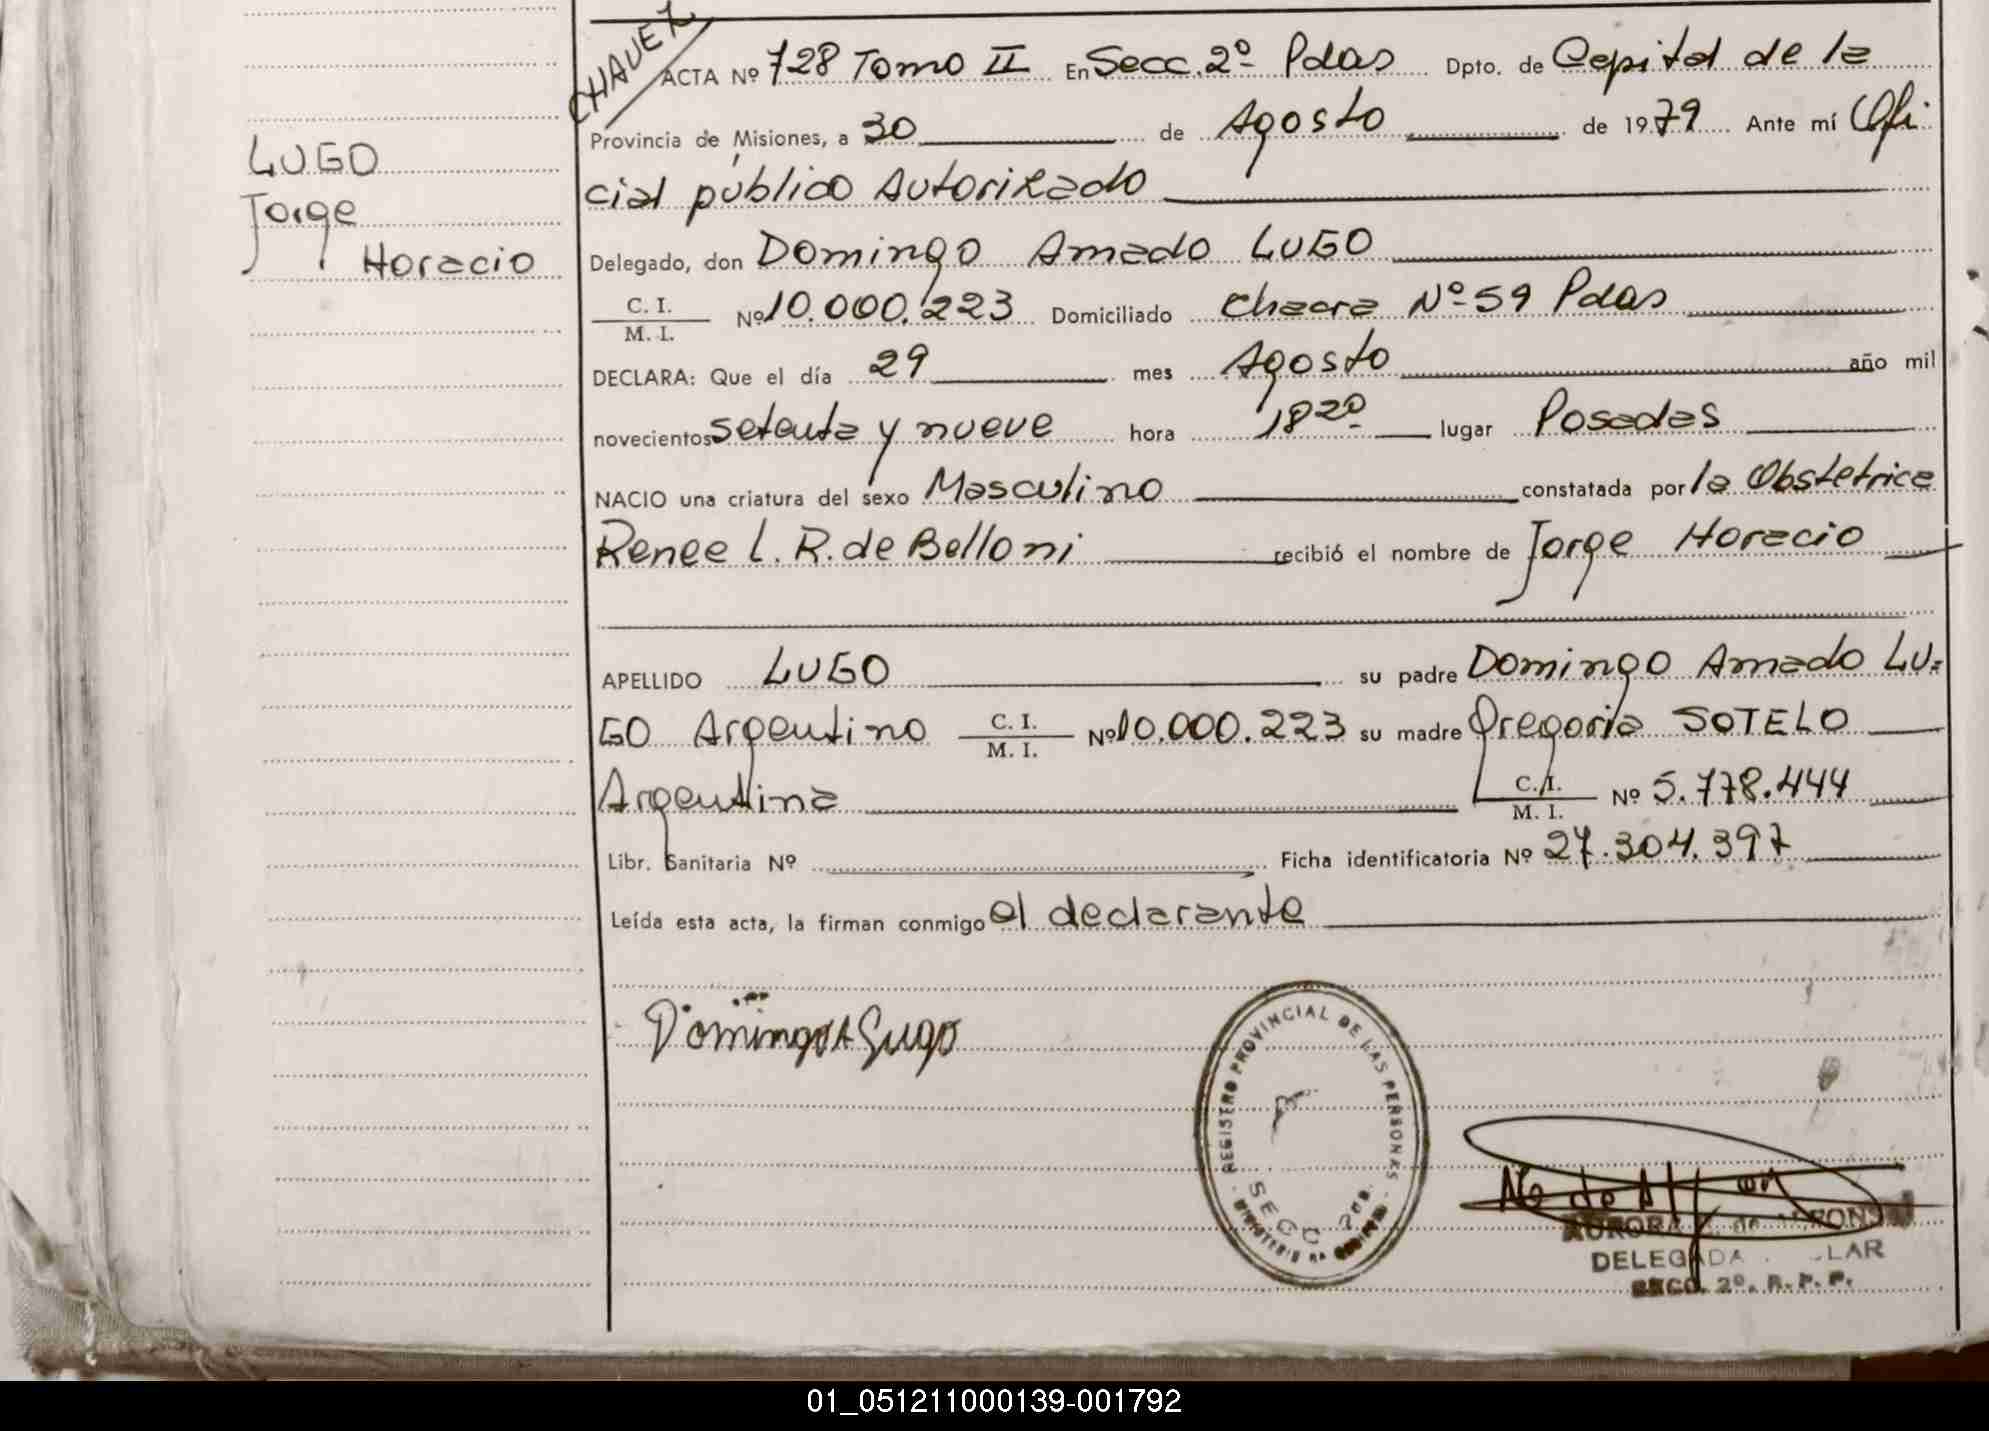 CHAVEZ
ACTA Nº 728 Tomo II En Secc. 2º Pdas Dpto. de Capital de la
Provincia de Misiones, a 30 de Agosto de 1979 Ante mí Ofi
cial público Autorizado
Delegado, don Domingo Amado LUGO
C. I.
M. I.
Nº 10.000.223 Domiciliado Chacra Nº 59 Pdas
DECLARA: Que el día 29 mes Agosto año mil
novecientos setenta y nueve hora 18 20 lugar Posadas
NACIO una criatura del sexo Masculino constatada por la Obstetrica
Renee L. R. de Belloni recibió el nombre de Jorge Horacio
APELLIDO LUGO su padre Domingo Amado LU=
GO Argentino C. I. M. I. Nº 10.000.223 su madre Gregoria SOTELO
Argentina C. I. M. I. Nº 5.778.444
Libr. Sanitaria Nº Ficha identificatoria Nº 27.304.397
Leída esta acta, la firman conmigo el declarante
LUGO
Jorge
Horacio
Domingo A Lugo
REGISTRO PROVINCIAL DE LAS PERSONAS
SECC
AURORA de
DELEGADA
SECC. 2º. R. P. P.
01_051211000139-001792